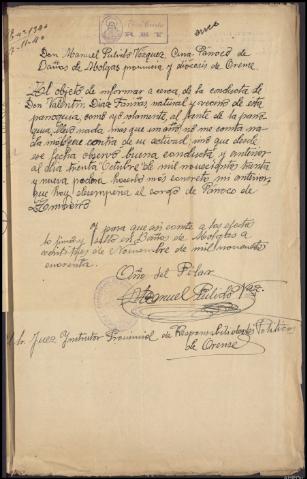 Don Manuel Pulido Vázquez, Cura Párroco de
Baños de Molgas provincia y diócesis de Orense.
Al objeto de informar a cerca de la conducta de
Don Valentín Diaz Fariñas natural y vecino de esta
parroquia, como ayo solamente, al frente de la parro
quia, llevo nada mas que un año no me consta na
da mas en contra de su actual, sino que desde
esa fecha observó buena conducta y anterior
al dia treinta Octubre de mil novecientos treinta
y nueve podera hacerlo mas concreto mi anterior
que hoy desempeña el cargo de Párroco de
Y para que asi conste a los efectos
lo firmo y sello en Baños de Molgas a
veintitres de Noviembre de mil novecientos
cuarenta.
Año del Pilar
Manuel Pulido Vaz.
Sr. Juez Instructor Provincial de Responsabilidades Politicas
de Orense